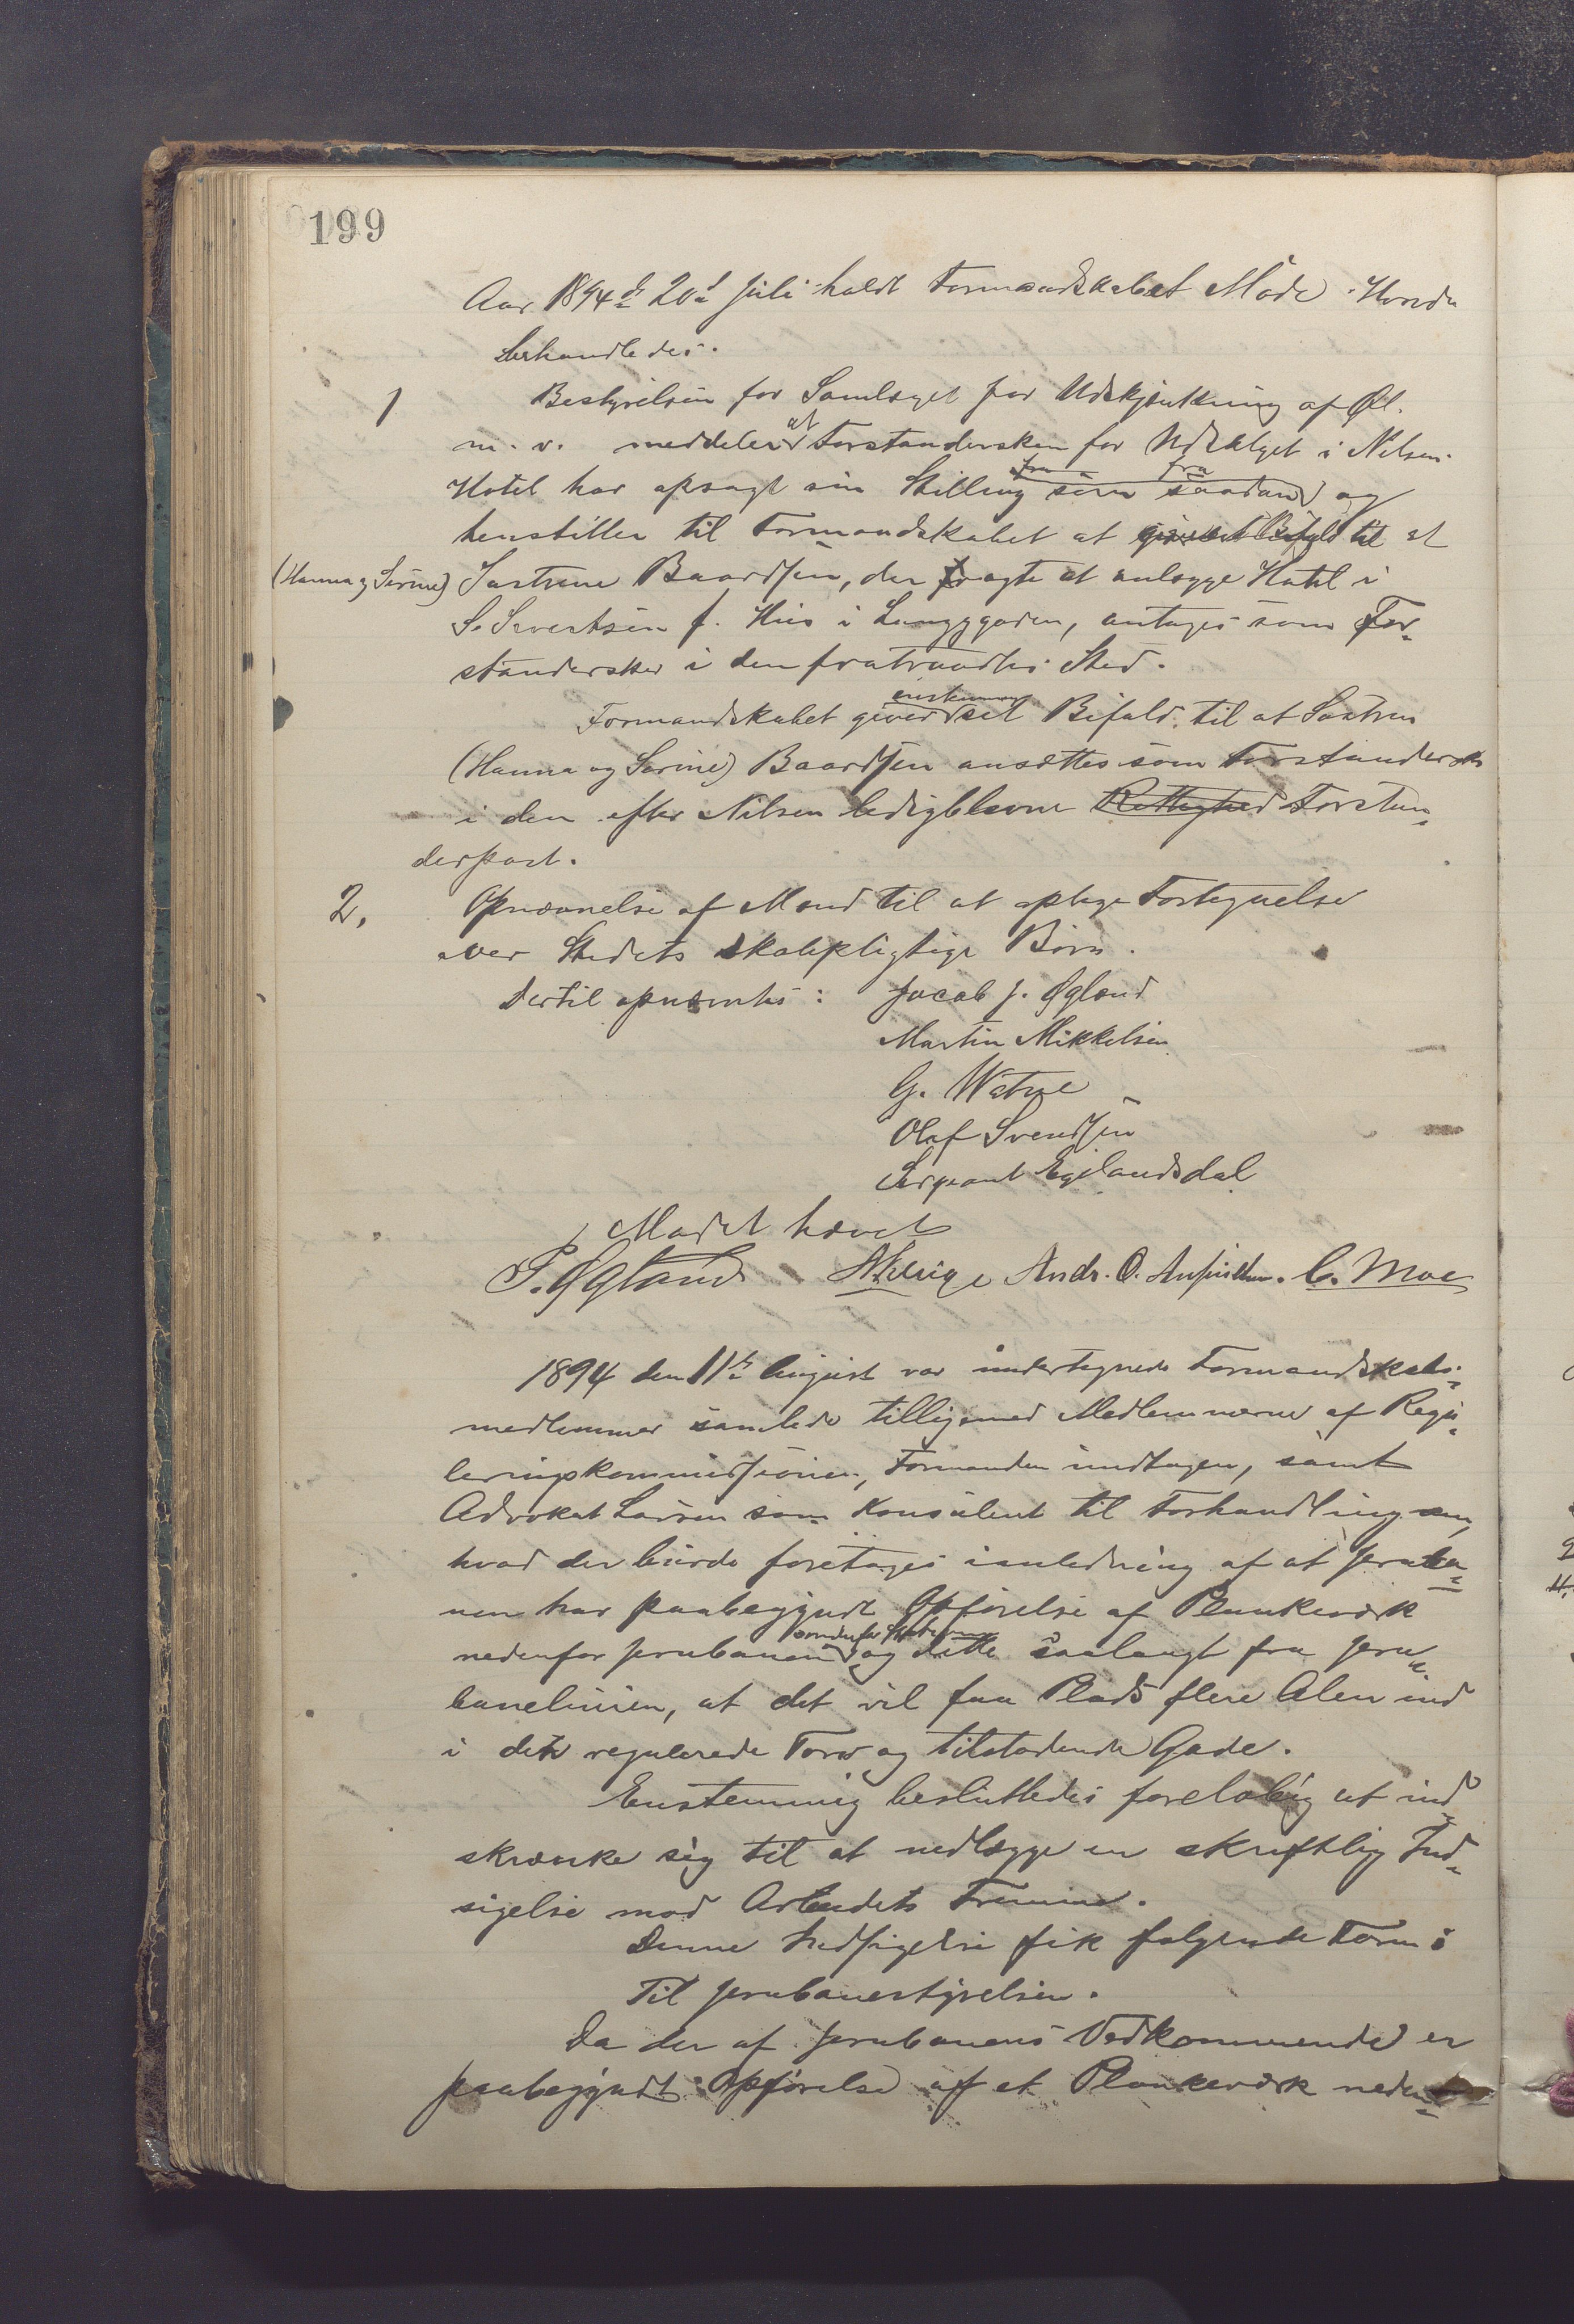 199
Aar 1894 d. 20de Juli holdt Formandskabet Møde. Hvorda
behandledes.
1 Bestyrelsen for Samlaget for Udskjænkning af Øl.
m. v. meddeler at Forstandersken for Udsalget i Nilsen
Hotel har opsagt sin Stilling som saadan fra og
henstiller til Formandskabet at givet Bifald til at
(Hanna og Serine) Søstrene Baardsen, der agte at anlægge Hotel i
S. Sivertsen f. Hus i Langgaden, antages som For-
standersker i den fratraadtes Sted.
Formandskabet giver enstemmig sit Bifald til at Søstrene
(Hanna og Serine) Baardsen ansættes som Forstandersk
i den efter Nilsen ledigblevne Rettighed Forstan-
derpost.
2. Opnævnelse af Mænd til at optage Fortegnelse
over Stedets skolepligtige Børn.
Dertil opnævntes: Jacob J. Øgland
Martin Mikkelsen
G. Watne
Olaf Svendsen
Sergeant Egelandsdal
Mødet hævet
P. Øgland Andr. O. C. Moe
1894 den 11te August var undertegnede Formandskabs-
medlemmer samlede tilligemed Medlemmerne af Regu-
leringskommissionen, Formanden undtagen, samt
Advokat Larsen som Konsulent til Forhandling om,
hvad der burde foretages ianledning af at Jernba-
nen har paabegyndt Opførelse af Plankeværk
nedenfor Jernbanen og dette saalangt fra Jern-
banelinien, at det vil faa Plads flere Alen ind
i det regulerede Torv og tilstødende Gade.
Enstemmig besluttedes foreløbig at ind-
skrænke sig til at nedlægge en skriftlig Ind-
sigelse mod Arbeidets Fremme.
Denne Indsigelse fik følgende Form:
Til Jernbanestyrelsen.
Da der af Jernbanens Vedkommende er
paabegyndt Opførelse af et Plankeværk neden-